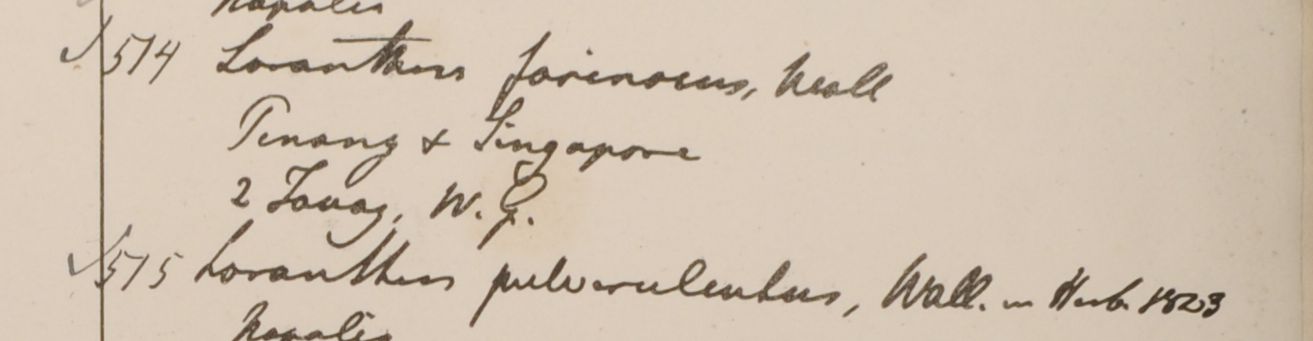 Napalia
514 Loranthus farinosus, Wall
Penang & Singapore
2 Tavoy, W. G.
515 Loranthus pulverulentus, Wall. in Herb. 1823
Napalia